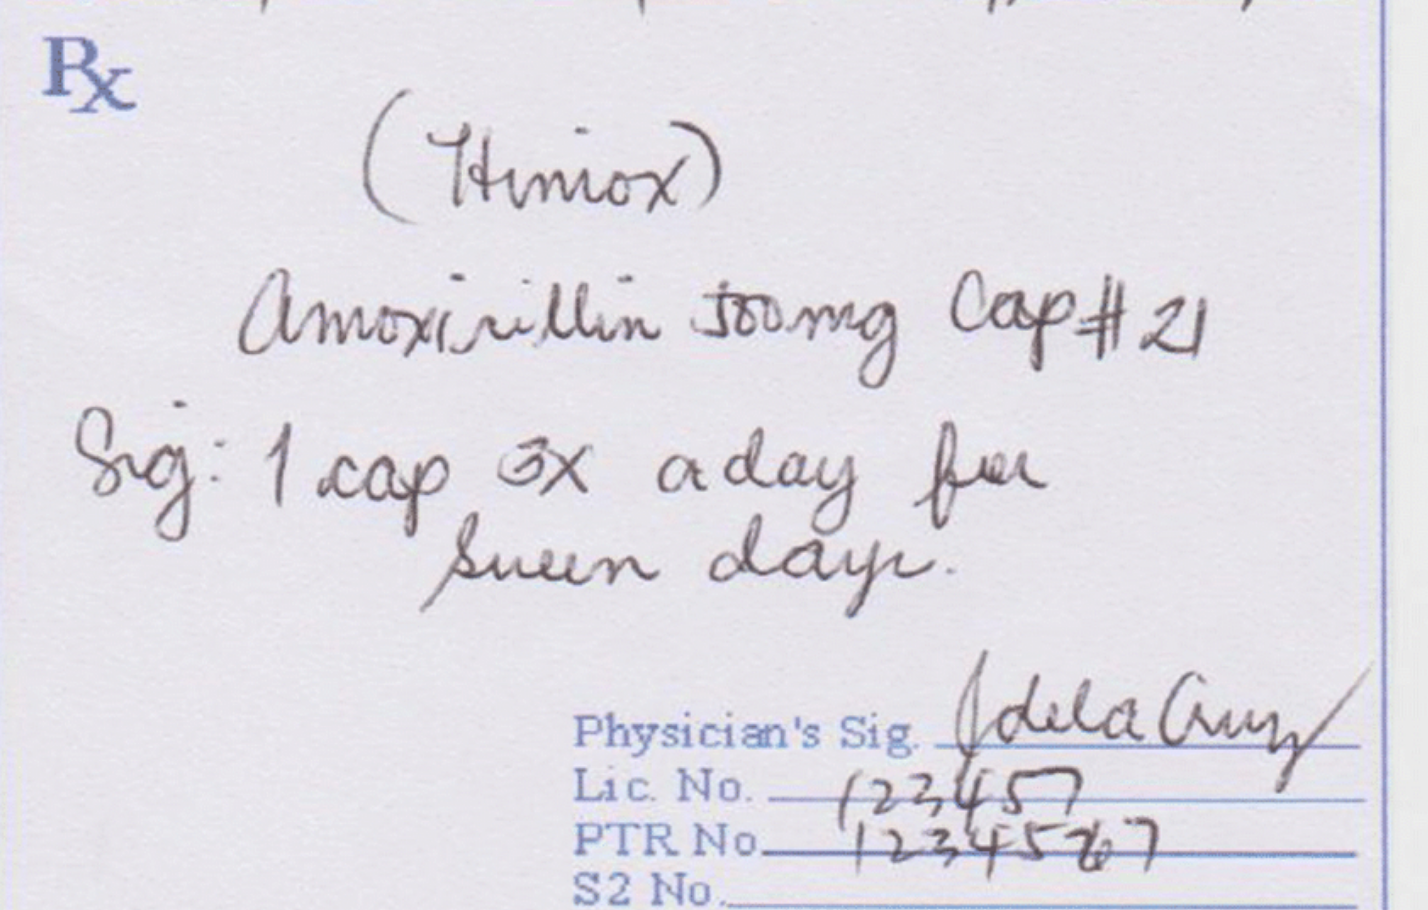 Rx
(Himox)
Amoxicillin 500mg Cap #21
Sig: 1 cap 3x a day for
seven days.
Physician's Sig. JdelaCruz
Lic. No. 123457
PTR No. 1234567
S2 No.